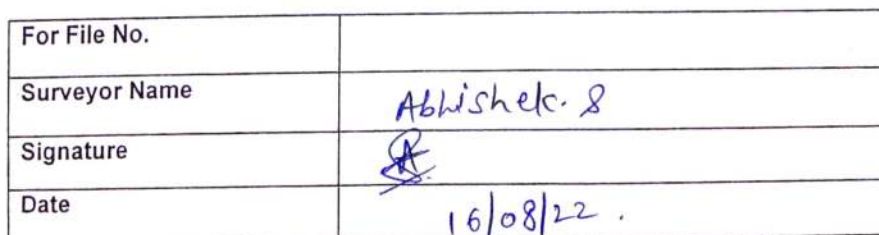 For File No.
Surveyor Name Abhishek. S
Signature
Date 16/08/22.